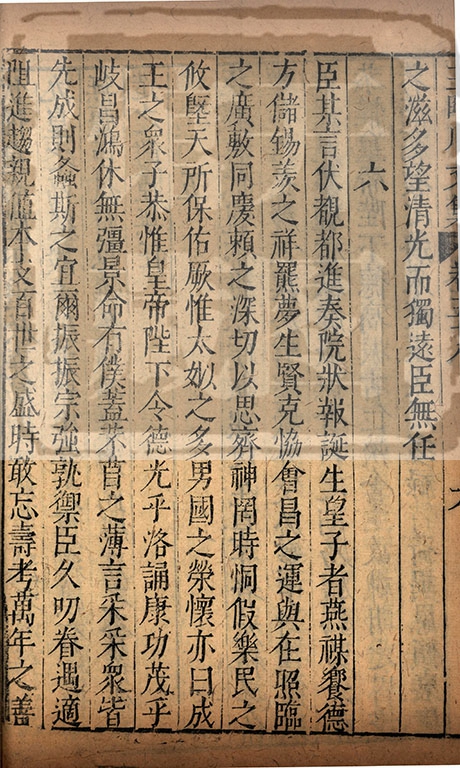 之滋多望清光而獨遠臣無任
六
臣某言伏覩都進奏院狀報誕生皇子者燕禖饗德
方儲錫羨之祥羆夢生賢克協會昌之運與在照臨
之廣敷同慶頼之深切以思齊神罔時恫假樂民之
攸塈天所保佑厥惟太姒之多男國之榮懷亦曰成
王之衆子恭惟皇帝陛下令德光乎洛誦康功茂乎
岐昌鴻休無彊景命有僕蓋芣苢之薄言采采衆皆
先成則螽斯之宜爾振振宗強孰禦臣久叨眷遇適
阻進趨親值本支百世之盛時敢忘壽考萬年之善